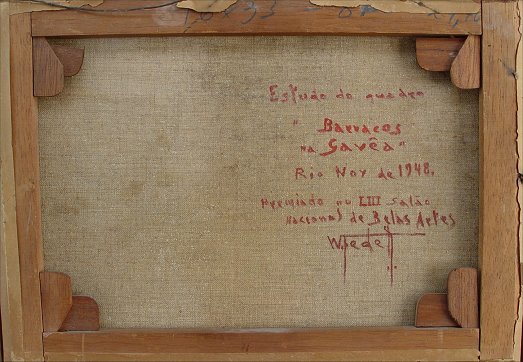 Estudo do quadro
"Barracos
na Gavêa"
Rio Nov de 1948.
Premiado no LIII Salão
Nacional de Belas Artes